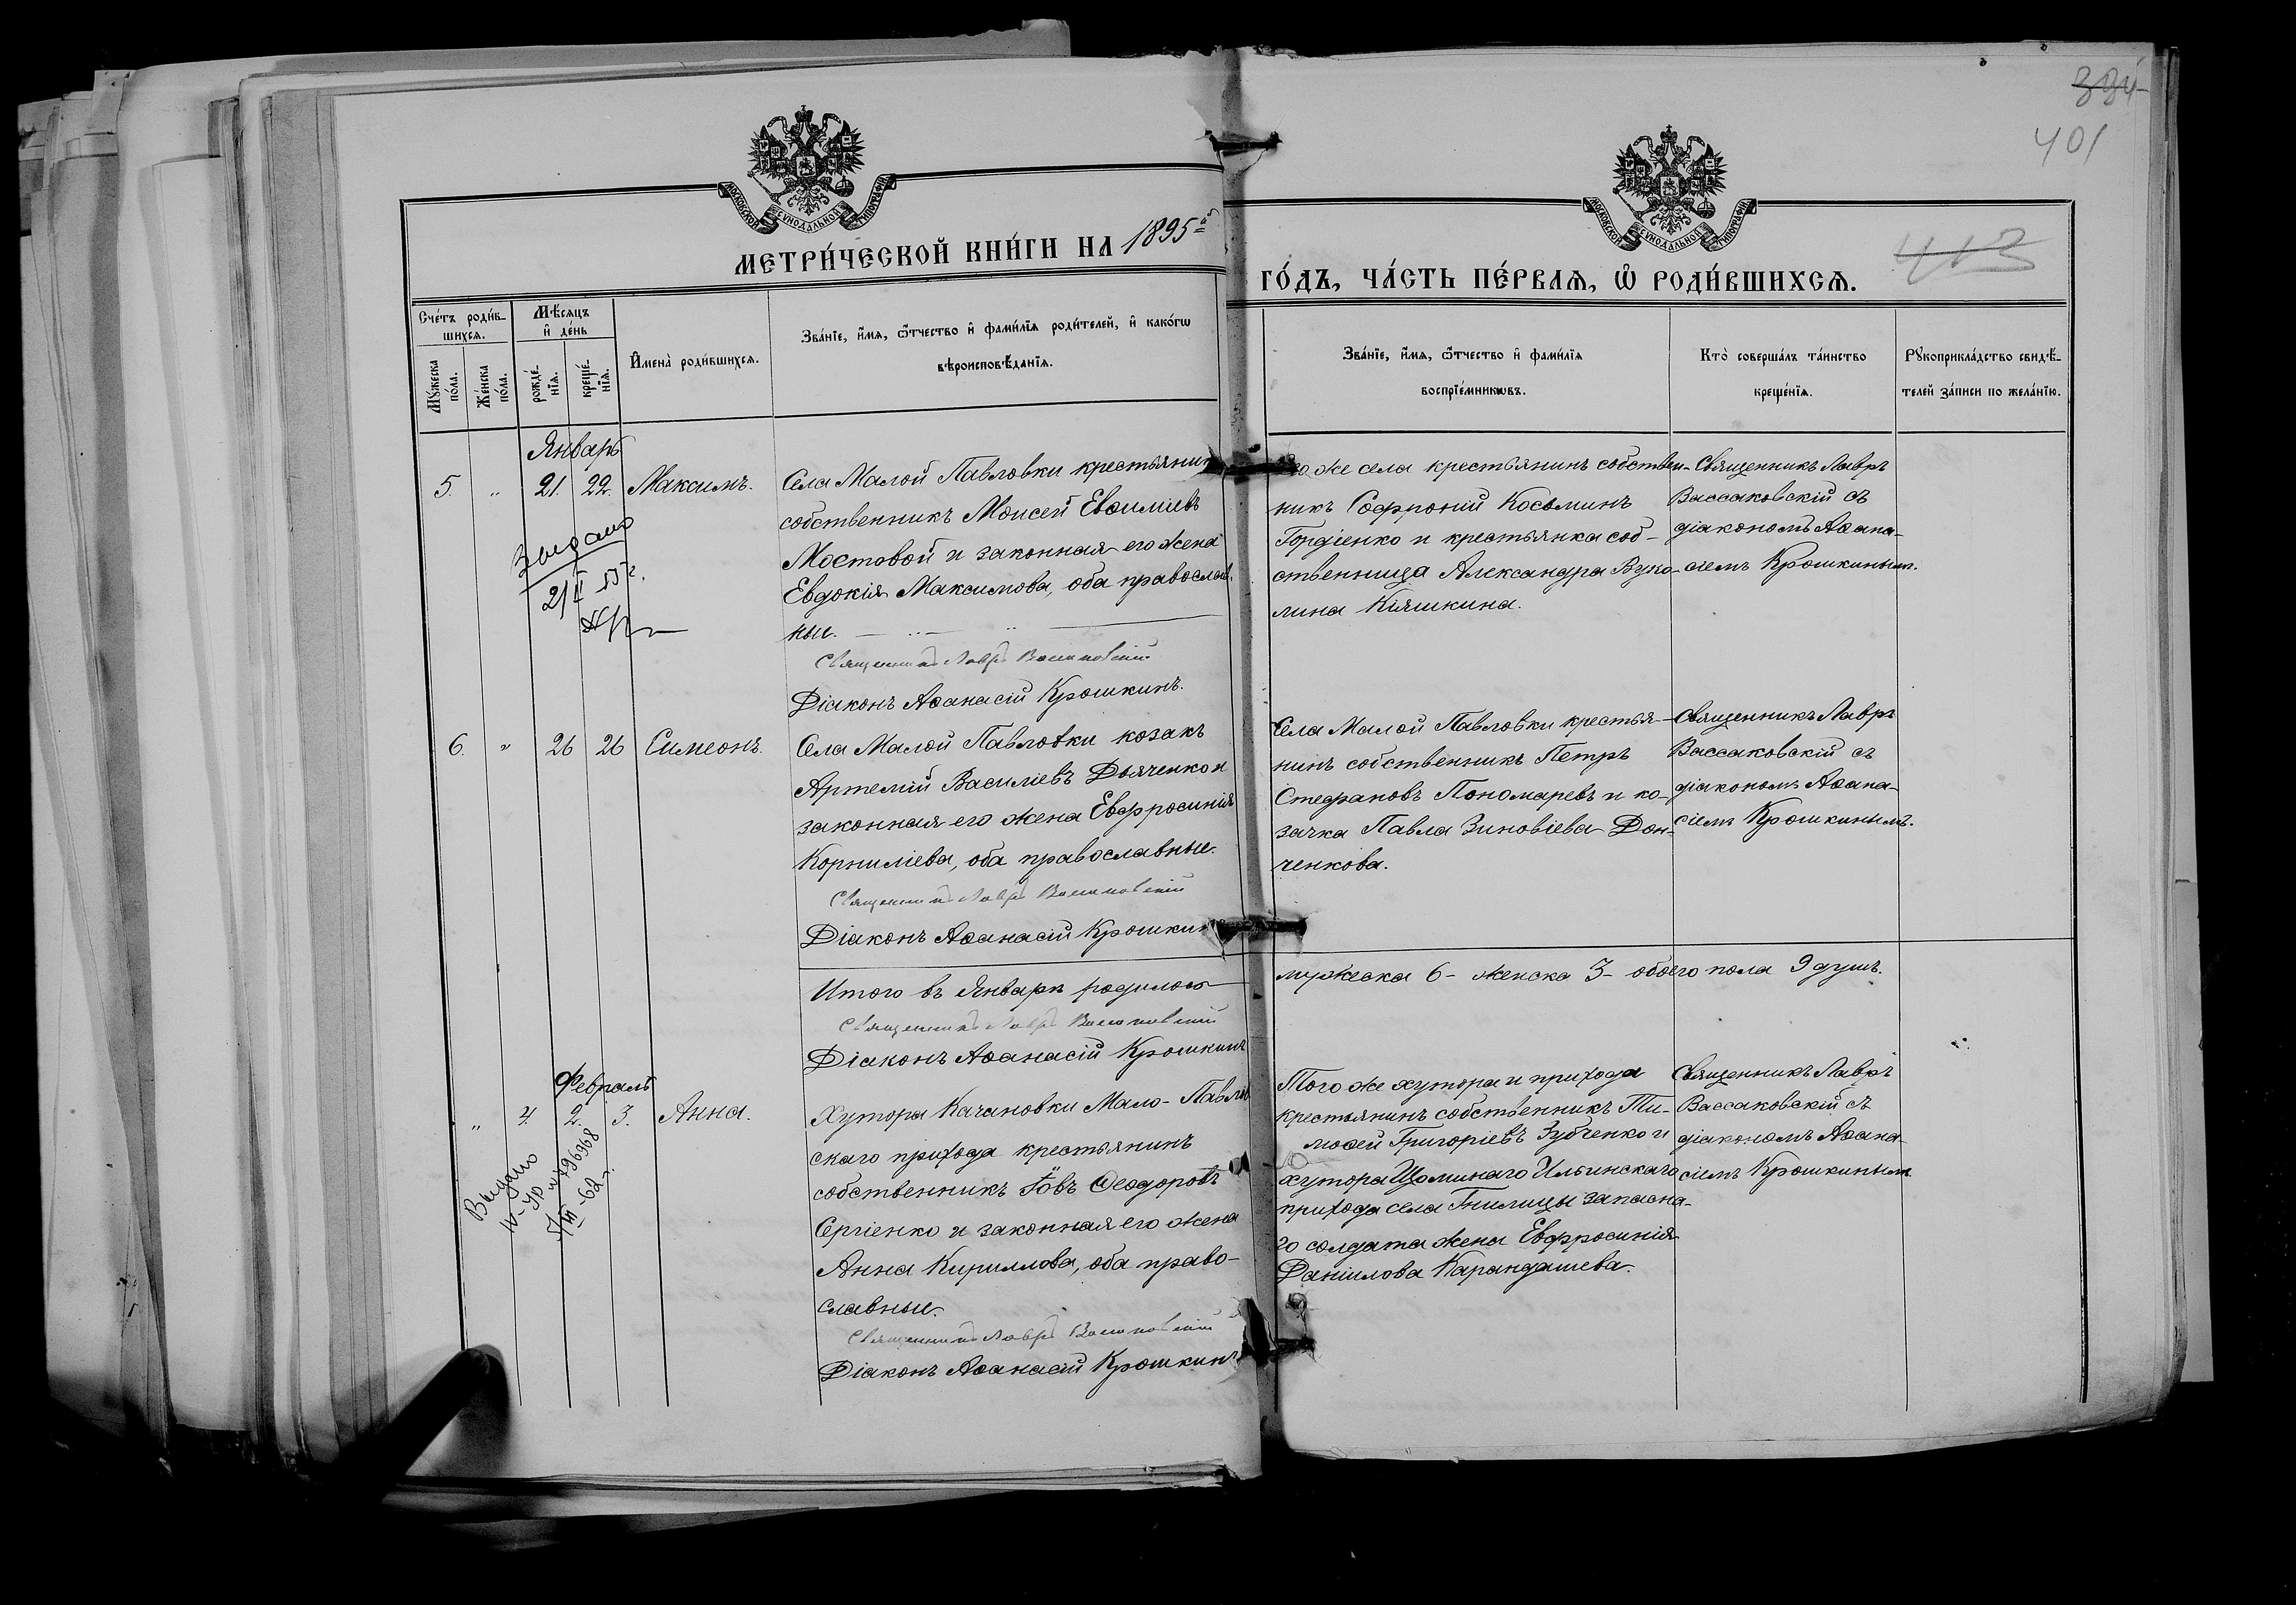 334
401
413
МОСКОВСКОЙ СѴНОДАЛЬНОЙ ТИПОГРАФІИ
МОСКОВСКОЙ СѴНОДАЛЬНОЙ ТИПОГРАФІИ
МЕТРИ́ЧЕСКОЙ КНИ́ГИ НА 1895й
ГО́ДЪ, ЧА́СТЬ ПЕ́РВАЯ, Ѽ РОДИ́ВШИХСЯ.
Сче́тъ роди́в-
шихся.
Мꙋ́жеска по́ла.
Же́нска по́ла.
Мѣ́сяцъ
и҆ де́нь
рожде́-
нїя.
креще́-
нїя.
И҆мена̀ роди́вшихся.
Зва́нїе, и҆́мя, ѻ҆́тчество и҆ фами́лїя роди́телей, и҆ како́гѡ
вѣроисповѣ́данїя.
Зва́нїе, и҆́мя, ѻ҆́тчество и҆ фами́лїя
воспрїе́мникѡвъ.
Кто̀ соверша́лъ та́инство
креще́нїя.
Рꙋкоприкла́дство свидѣ́-
телей за́писи по жела́нїю.
Январь
5. „ 21. 22. Максимъ.
Села Малой Павловки крестьянин
собственникъ Моисей Евѳиміевъ
Мостовой и законная его жена
Евдокія Максимова, оба православ-
ные.
Священникъ Лавръ Вассаковскій
Діаконъ Аѳанасій Крошкинъ.
го же села крестьянинъ собствен-
никъ Софроній Косьминъ
Гордіенко и крестьянка соб-
ственница Александра Вуко-
лина Кіяшкина.
Священникъ Лавръ
Вассаковскій съ
діакономъ Аѳана-
сіемъ Крошкинымъ.
21/I 55 г.
6. „ 26 26 Симеонъ.
Села Малой Павловки козакъ
Артемій Василіевъ Дьяченко и
законная его жена Евфросинія
Корниліева, оба православные.
Священникъ Лавръ Вассаковскій
Діаконъ Аѳанасій Крошкин
Села Малой Павловки крестья-
нинъ собственникъ Петръ
Стефановъ Пономаревъ и ко-
зачка Павла Зиновіева Дон-
ченкова.
Священникъ Лавръ
Вассаковскій съ
діакономъ Аѳана-
сіемъ Крошкинымъ.
Итого въ Январѣ родилось
мужеска 6 - женска 3 - обоего пола 9 душъ.
Священникъ Лавръ Вассаковскій
Діаконъ Аѳанасій Крошкинъ
Февраль
„ 4. 2. 3. Анна.
Хутора Качановки Мало-Павлов
скаго прихода крестьянинъ
собственникъ Іовъ Ѳеодоровъ
Сергіенко и законная его жена
Анна Кириллова, оба право-
славные.
Священникъ Лавръ Вассаковскій
Діаконъ Аѳанасій Крошкинъ
Того же хутора и прихода
крестьянинъ собственникъ Ти-
моѳей Григоріевъ Зубченко и
хутора Щоминаго Ильинскаго
прихода села Гнилицы запасна-
го солдата жена Евфросинія
Даніилова Карандашева.
Священникъ Лавръ
Вассаковскій съ
діакономъ Аѳана-
сіемъ Крошкинымъ
Выдано
796968